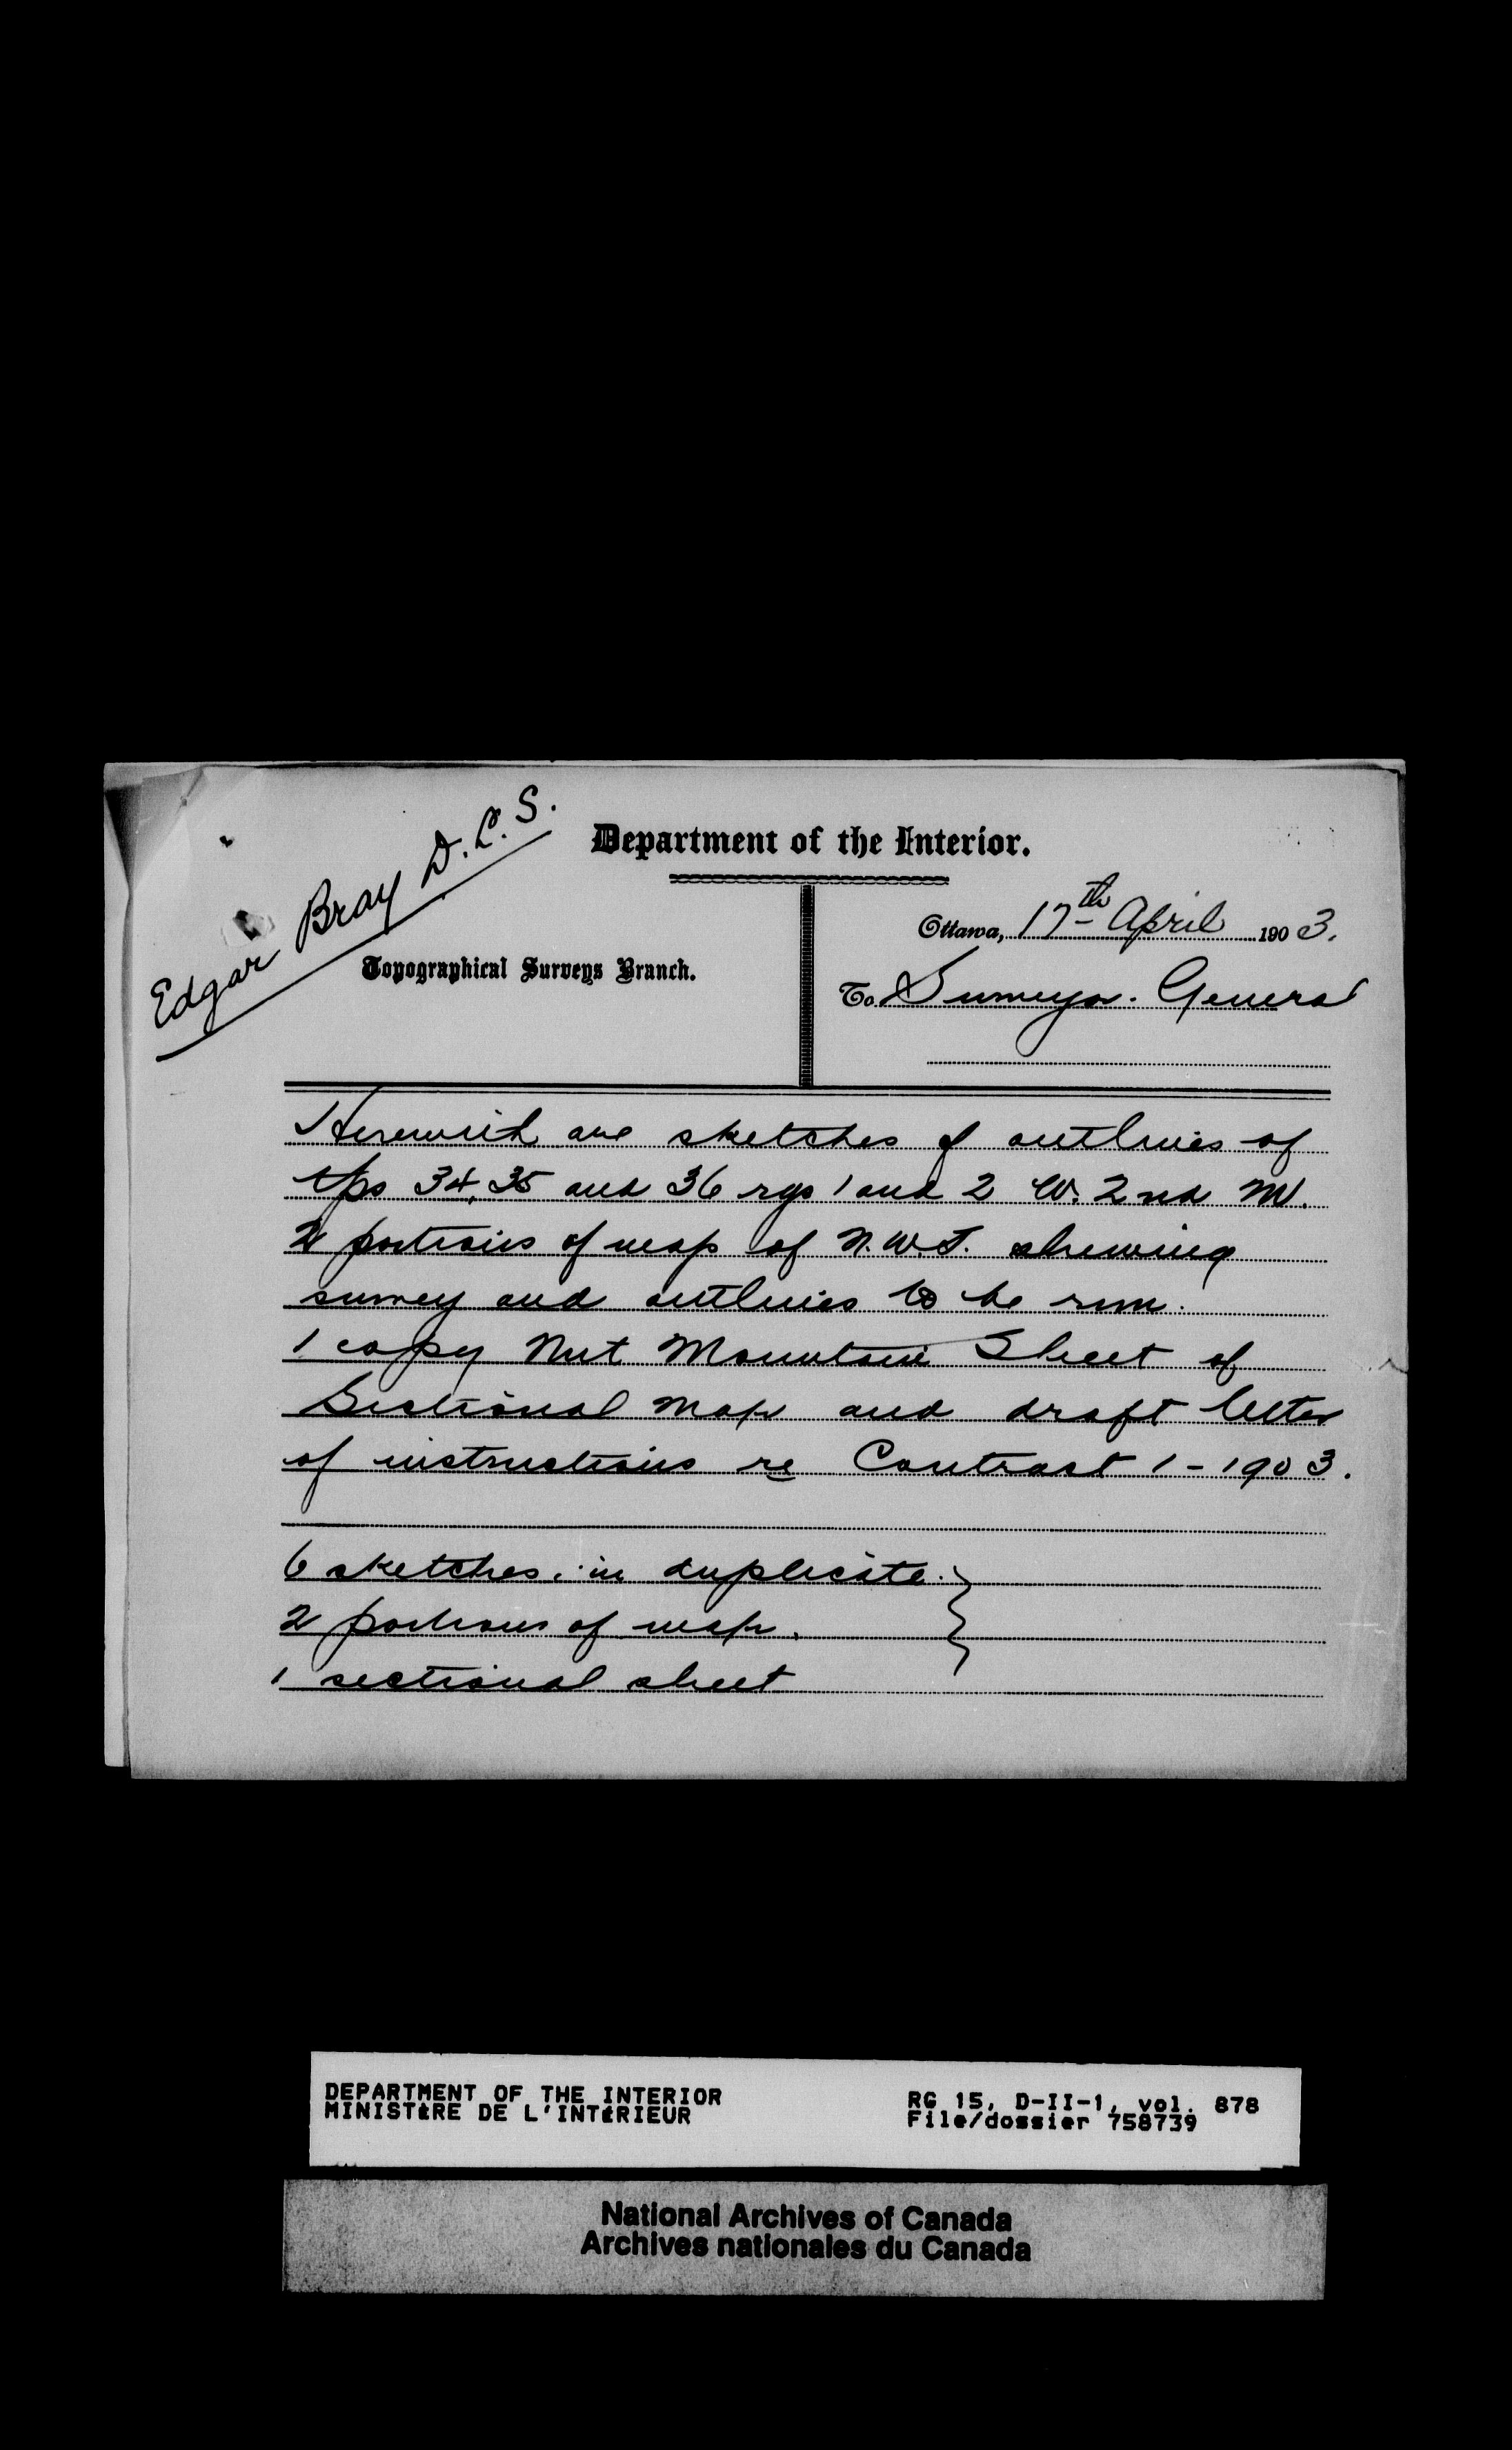 Edgar Bray D.L.S.
Department of the Interior.
Topographical Surveys Branch.
Ottawa, 17th April 1903.
To Surveyor General
Herewith are sketches of outlines of
tps 34, 35 and 36 rgs 1 and 2 W. 2nd M.
2 portions of map of N.W.T. shewing
survey and outlines to be run.
1 copy Nut Mountain Sheet of
Sectional Map and draft letter
of instructions re Contract 1-1903.
6 sketches in duplicate.
2 portions of map.
1 sectional sheet
DEPARTMENT OF THE INTERIOR
MINISTÈRE DE L'INTÉRIEUR
RG 15, D-II-1, vol. 878
File/dossier 758739
National Archives of Canada
Archives nationales du Canada